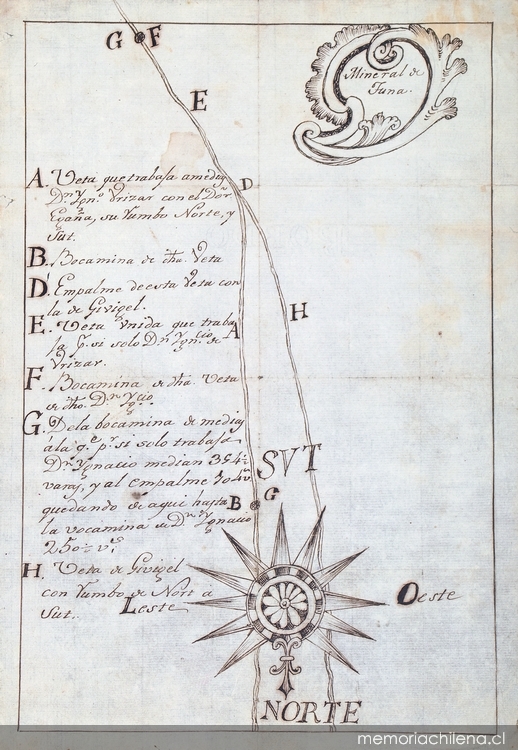 G F
Mineral de
Tuna.
E
A. Veta que trabaja amedias
Dn. Ygno. Vrizar con el Dor.
Egaña, su rumbo Norte, y
Sut.
D
B. Bocamina de dha. Veta
D. Empalme de esta Veta con
la de Givigel.
H
E. Veta Vnida que traba
ja pr. si solo Dn. Ygncio. de
Vrizar.
A
F. Bocamina de dha. Veta
de dho. Dn. Ygcio.
G. Dela bocamina de medias
ála qe. pr. si solo trabaja
Dn. Ygnacio median 354½
varas, y al empalme 104
quedando de aqui hasta
la vocamina de Dn. Ygnacio
250½ vs.
SVT
B G
H. Veta de Givigel
con rumbo de Nort a
Sut.
Leste
Oeste
NORTE
memoriachilena.cl